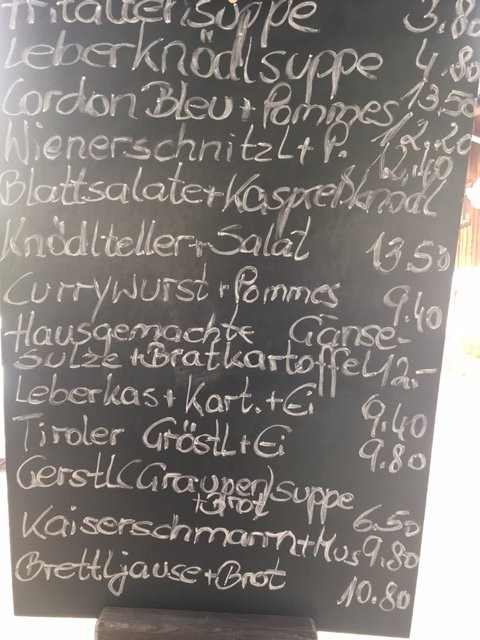 Fritattensuppe 3.80
Leberknödlsuppe 4.80
Cordon Bleu + Pommes 13.50
Wienerschnitzl + P. 12.20
Blattsalate + Kaspreßknödl 12.40
Knödlteller + Salat 13.50
Currywurst + Pommes 9.40
Hausgemachte Gänse-
Sülze + Bratkartoffel 12,-
Leberkas + Kart. + Ei 9.40
Tiroler Gröstl + Ei 9.80
Gerstl (Graupen) suppe
+ Brot 6.50
Kaiserschmarrn + Mus 9.80
Brettljause + Brot 10.80